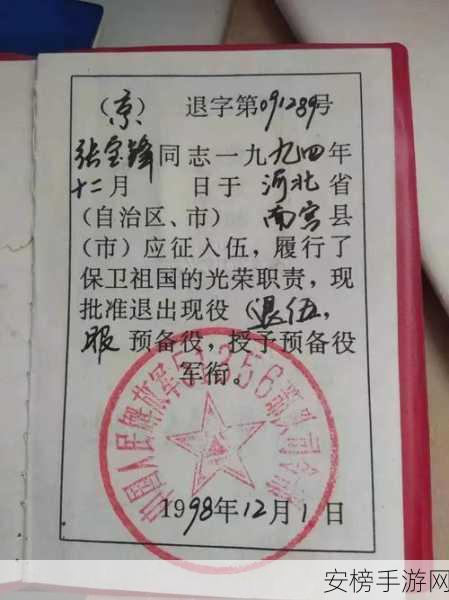 (京) 退字第091289号
张宝锋同志一九九四年
十二月 日于河北省
(自治区、市) 南宫县
(市)应征入伍,履行了
保卫祖国的光荣职责,现
批准退出现役 退伍,
服 预备役,授予预备役
军衔。
中国人民解放军51356部队司令部
1998年12月1日
安榜手游网
ANBANG.COM